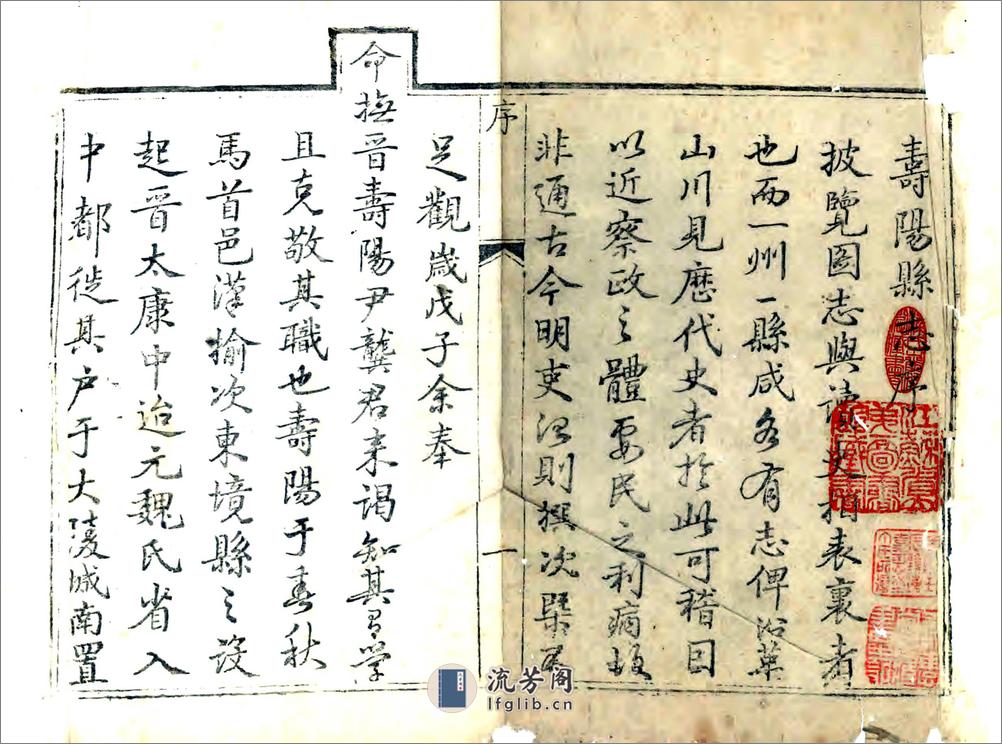 壽陽縣志序
披覽圖志與讀史相表裏者
也而一州一縣咸各有志俾沿革
山川見歷代史者於此可稽因
以近察政之體要民之利病故
非通古今明吏治則撰次槩無
序
一
足觀歲戊子余奉
命撫晉壽陽尹龔君来谒知其有学
且克敬其職也壽陽于春秋
馬首邑漢榆次東境縣之設
起晋太康中迨元魏氏省入
中都徙其户于大陵城南置
流芳阁
lfglib.cn